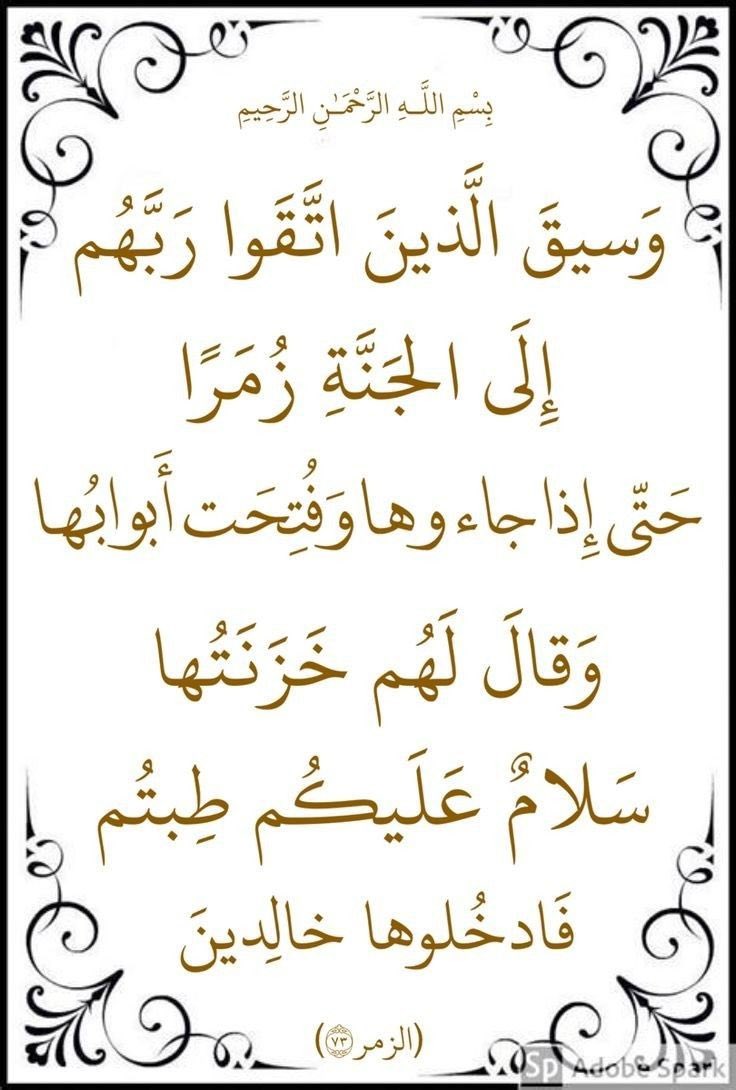 بِسْمِ اللَّـهِ الرَّحْمَـٰنِ الرَّحِيمِ
وَسيقَ الَّذينَ اتَّقَوا رَبَّهُم
إِلَى الجَنَّةِ زُمَرًا
حَتّى إِذا جاءوها وَفُتِحَت أَبوابُها
وَقالَ لَهُم خَزَنَتُها
سَلامٌ عَلَيكُم طِبتُم
فَادخُلوها خالِدينَ
(الزمر ٧٣)
Sp Adobe Spark